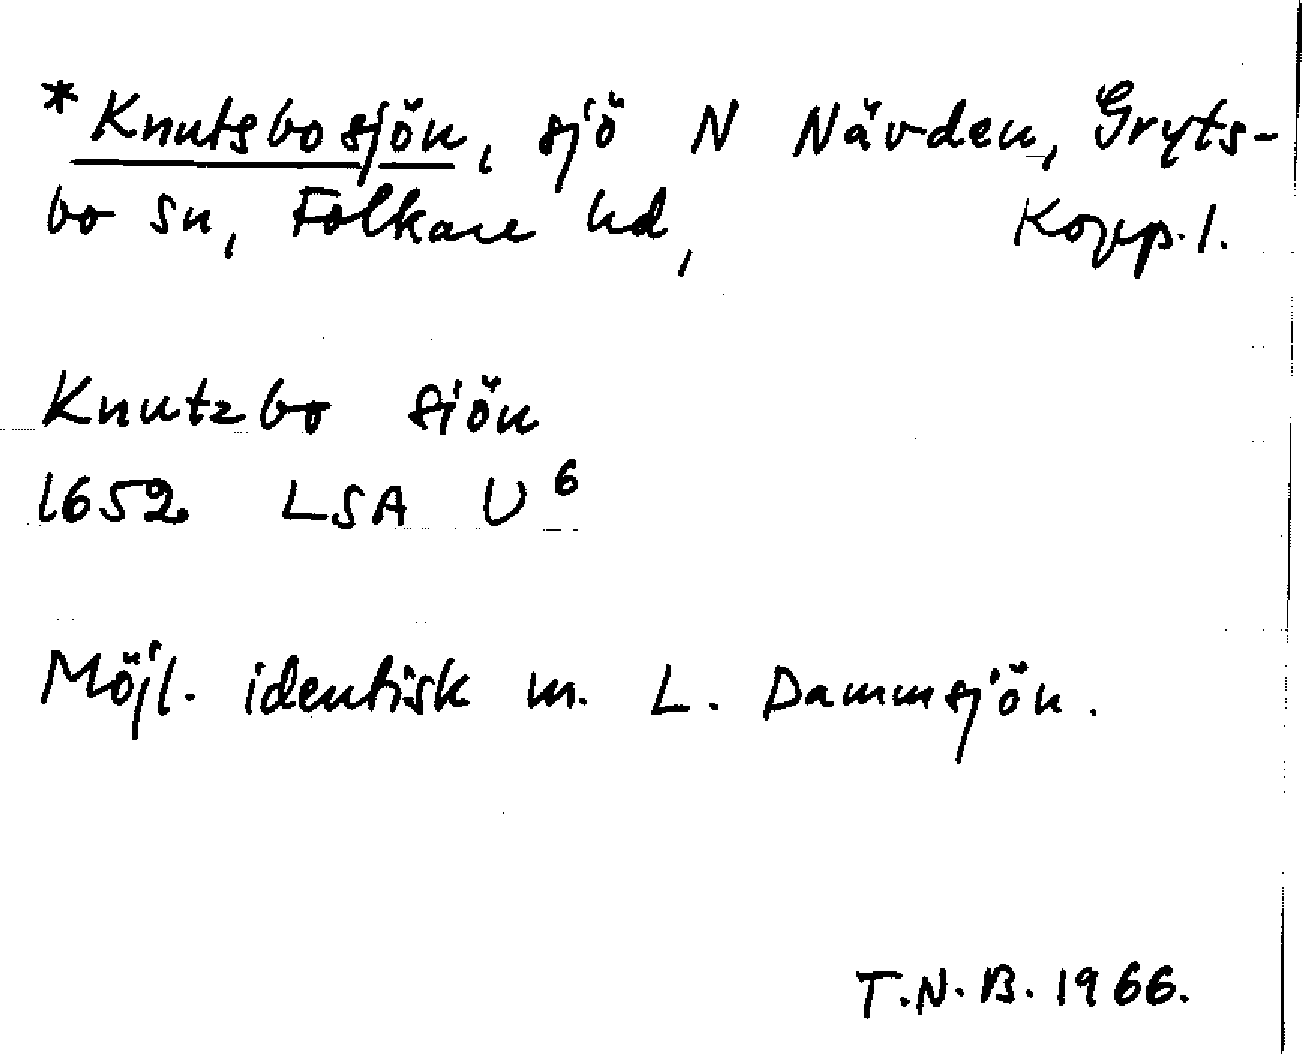 *Knutsbosjön, sjö N Nävden, Gryts-
bo sn, Folkare hd, Kopp. l.
Knutzbo siön
1652 LSA U6
Möjl. identisk m. L. Dammsjön.
T.N.B. 1966.